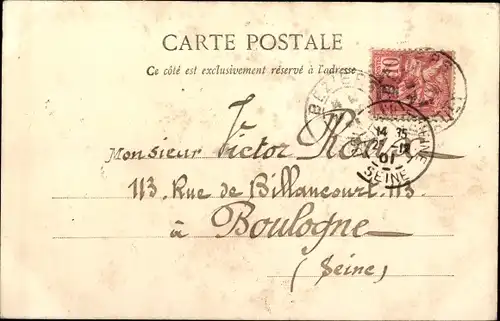 CARTE POSTALE
Ce côté est exclusivement réservé à l'adresse
10
14 35
01
SEINE
Monsieur Victor
113 Rue de Billancourt 113
à Boulogne
(Seine)